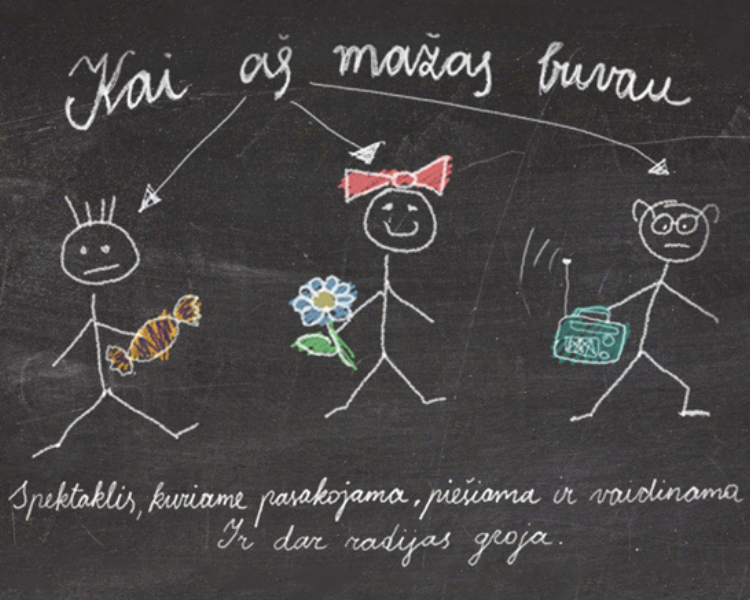 Kai aš mažas buvau
Spektaklis, kuriame pasakojama, piešiama ir vaidinama
Ir dar radijas groja.